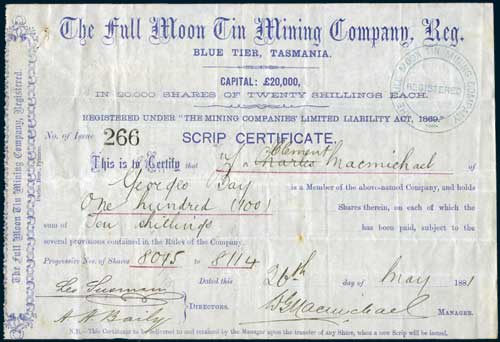 The Full Moon Tin Mining Company, Reg.
BLUE TIER, TASMANIA.
CAPITAL: £20,000,
IN 20,000 SHARES OF TWENTY SHILLINGS EACH.
REGISTERED UNDER "THE MINING COMPANIES' LIMITED LIABILITY ACT, 1869."
No. of Issue 266 SCRIP CERTIFICATE.
Clement
This is to Certify that Charles Macmichael of
Georges Bay is a Member of the above-named Company, and holds
One hundred (100) Shares therein, on each of which the
sum of Ten shillings has been paid, subject to the
several provisions contained in the Rules of the Company.
Progressive Nos. of Shares 8015 to 8114
Dated this 26th day of May 1881
DIRECTORS.
Macmichael MANAGER.
A H Baily
N.B.—This Certificate to be delivered to and retained by the Manager upon the transfer of any Share, when a new Scrip will be issued.
The Full Moon Tin Mining Company, Registered.
THE FULL MOON TIN MINING COMPANY
REGISTERED